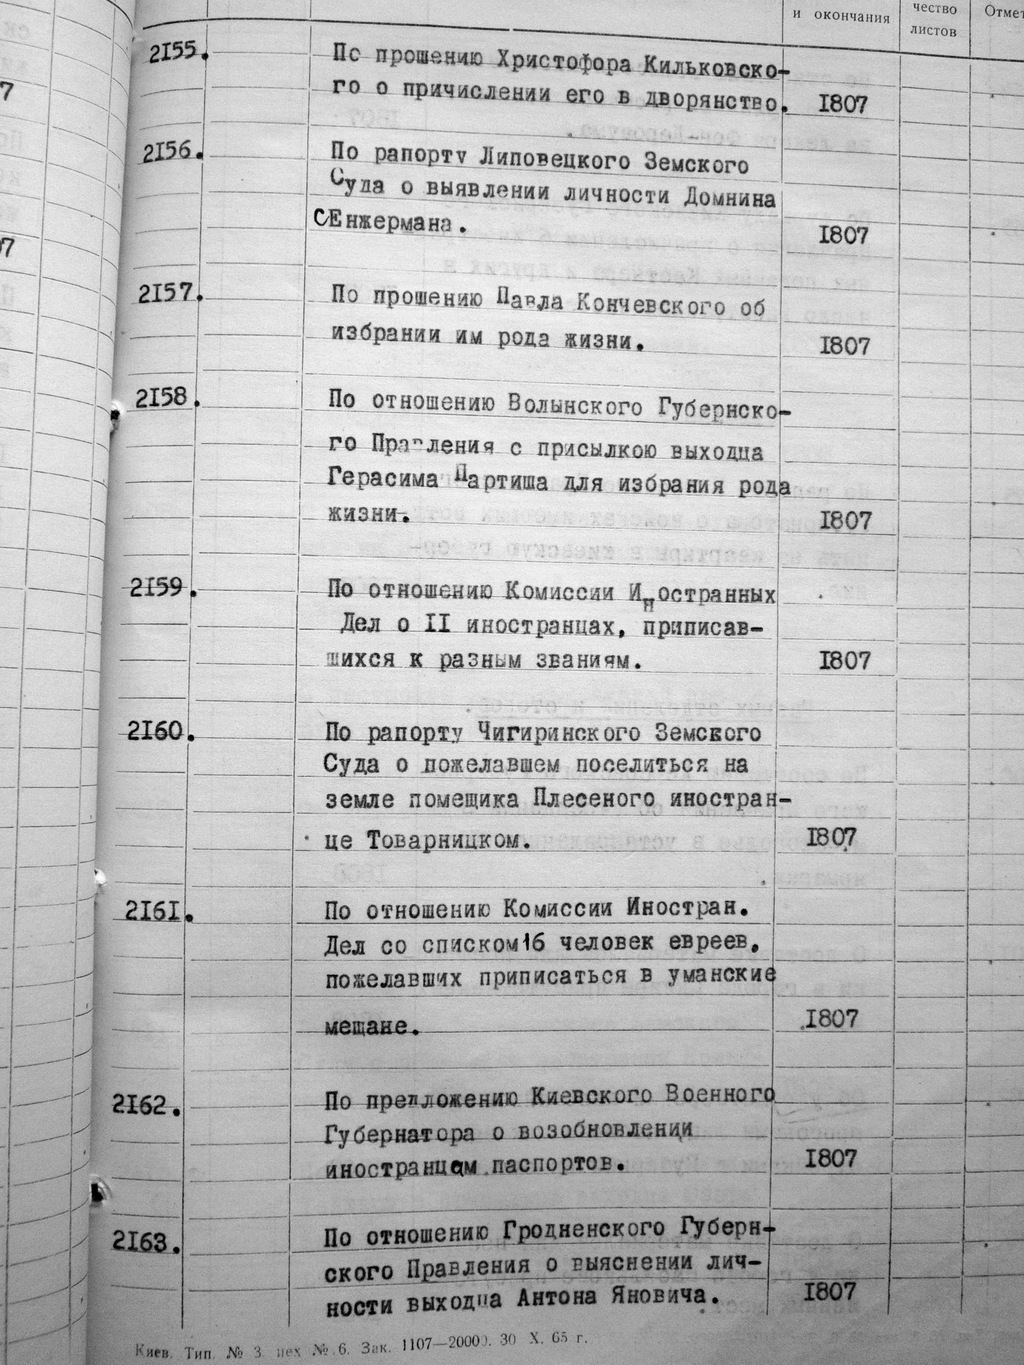 и окончания
чество
листов
Отмет
2155. По прошению Христофора Кильковско-
го о причислении его в дворянство. 1807
2156. По рапорту Липовецкого Земского
Суда о выявлении личности Домнина
СЕнжермана. 1807
2157. По прошению Павла Кончевского об
избрании им рода жизни. 1807
2158. По отношению Волынского Губернско-
го Правления с присылкою выходца
Герасима Партиша для избрания рода
жизни. 1807
2159. По отношению Комиссии Иностранных
Дел о II иностранцах, приписав-
шихся к разным званиям. 1807
2160. По рапорту Чигиринского Земского
Суда о пожелавшем поселиться на
земле помещика Плесеного иностран-
це Товарницком. 1807
2161. По отношению Комиссии Иностран.
Дел со списком 16 человек евреев,
пожелавших приписаться в уманские
мещане. 1807
2162. По предложению Киевского Военного
Губернатора о возобновлении
иностранцам паспортов. 1807
2163. По отношению Гродненского Губерн-
ского Правления о выяснении лич-
ности выходца Антона Яновича. 1807
Киев. Тип. № 3 цех № 6. Зак. 1107—20000. 30 X. 65 г.